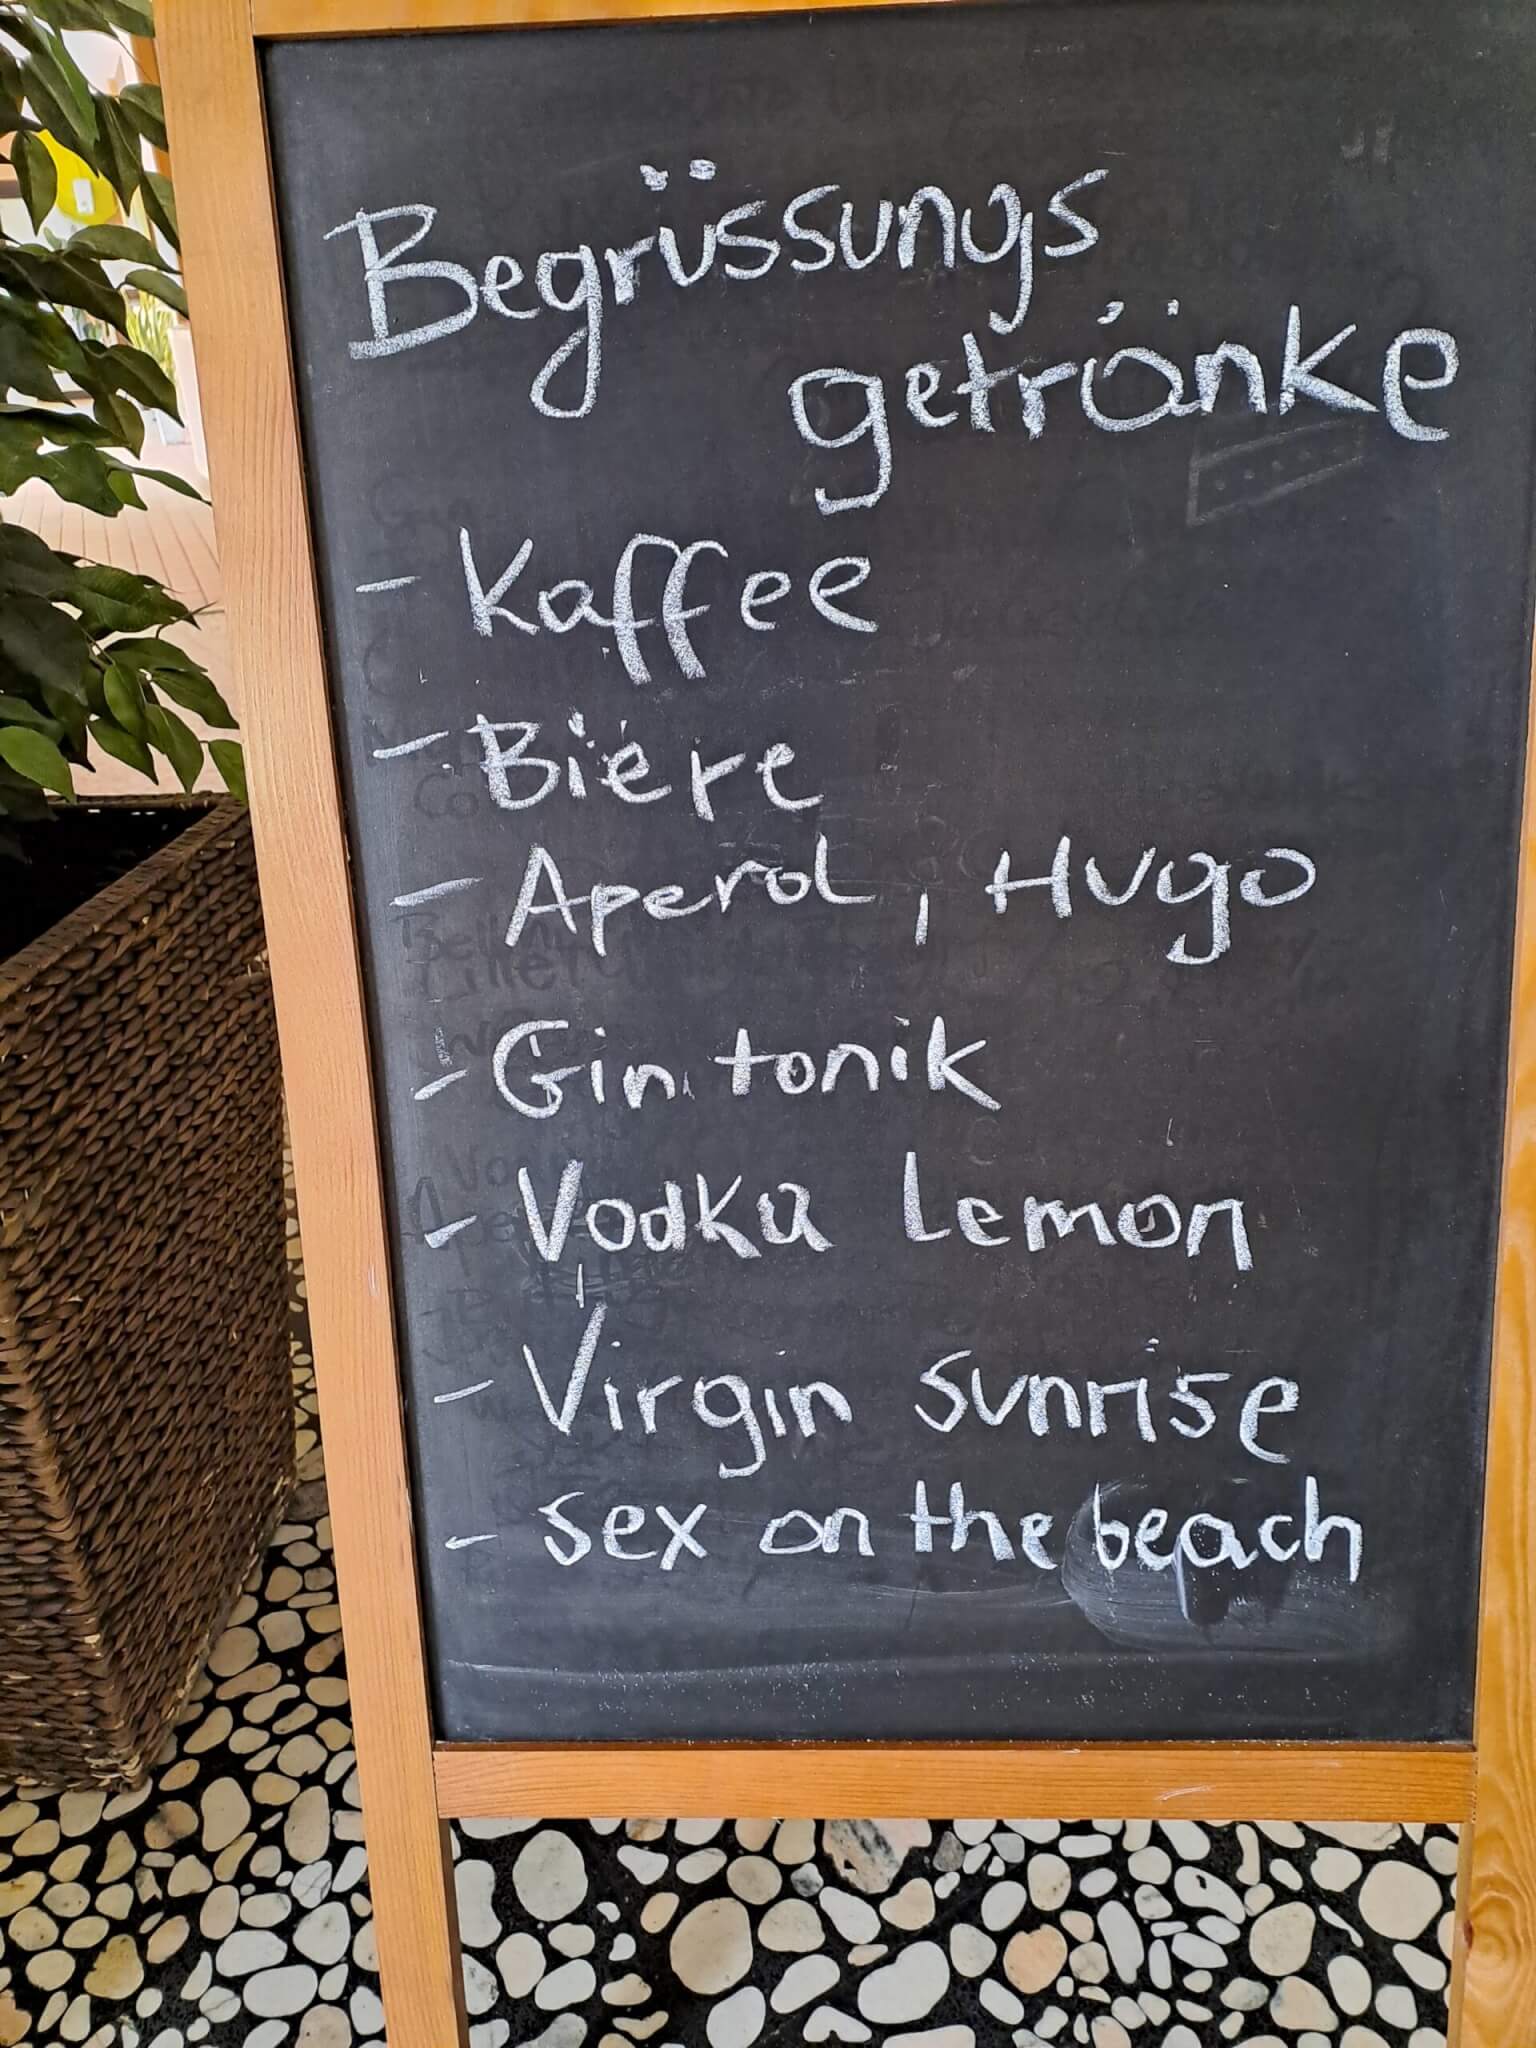 Begrüssungs
getränke
- Kaffee
- Biere
- Aperol, Hugo
- Gin tonik
- Vodka Lemon
- Virgin sunrise
- sex on the beach